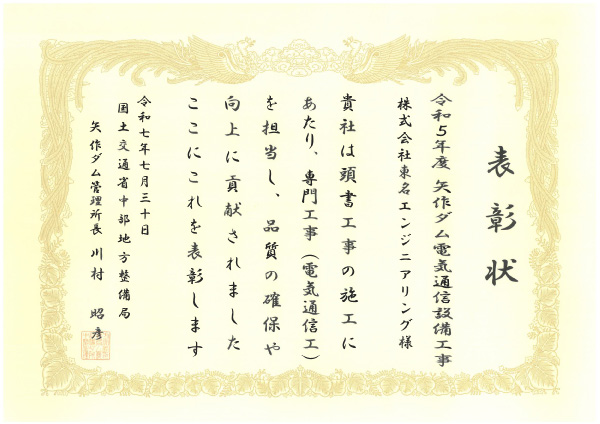 表彰状
令和5年度 矢作ダム電気通信設備工事
株式会社東名エンジニアリング様
貴社は頭書工事の施工に
あたり、専門工事（電気通信工）
を担当し、品質の確保や
向上に貢献されました
ここにこれを表彰します
令和七年七月三十日
国土交通省中部地方整備局
矢作ダム管理所長 川村 昭彦